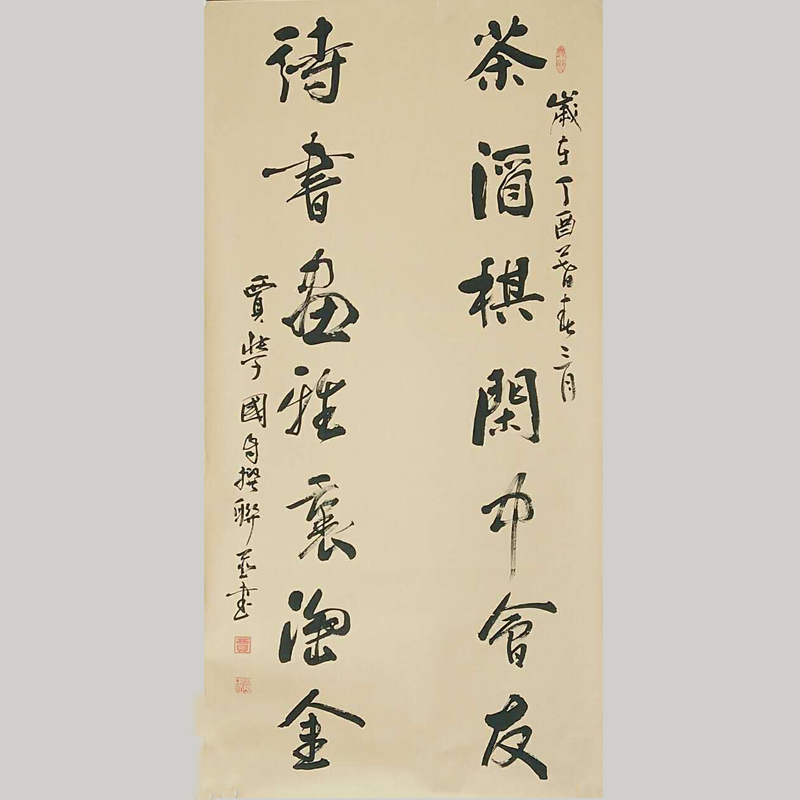 歲在丁酉暮春三月
茶酒棋閑中會友
詩書畫雅裏淘金
賈國自撰聯並書